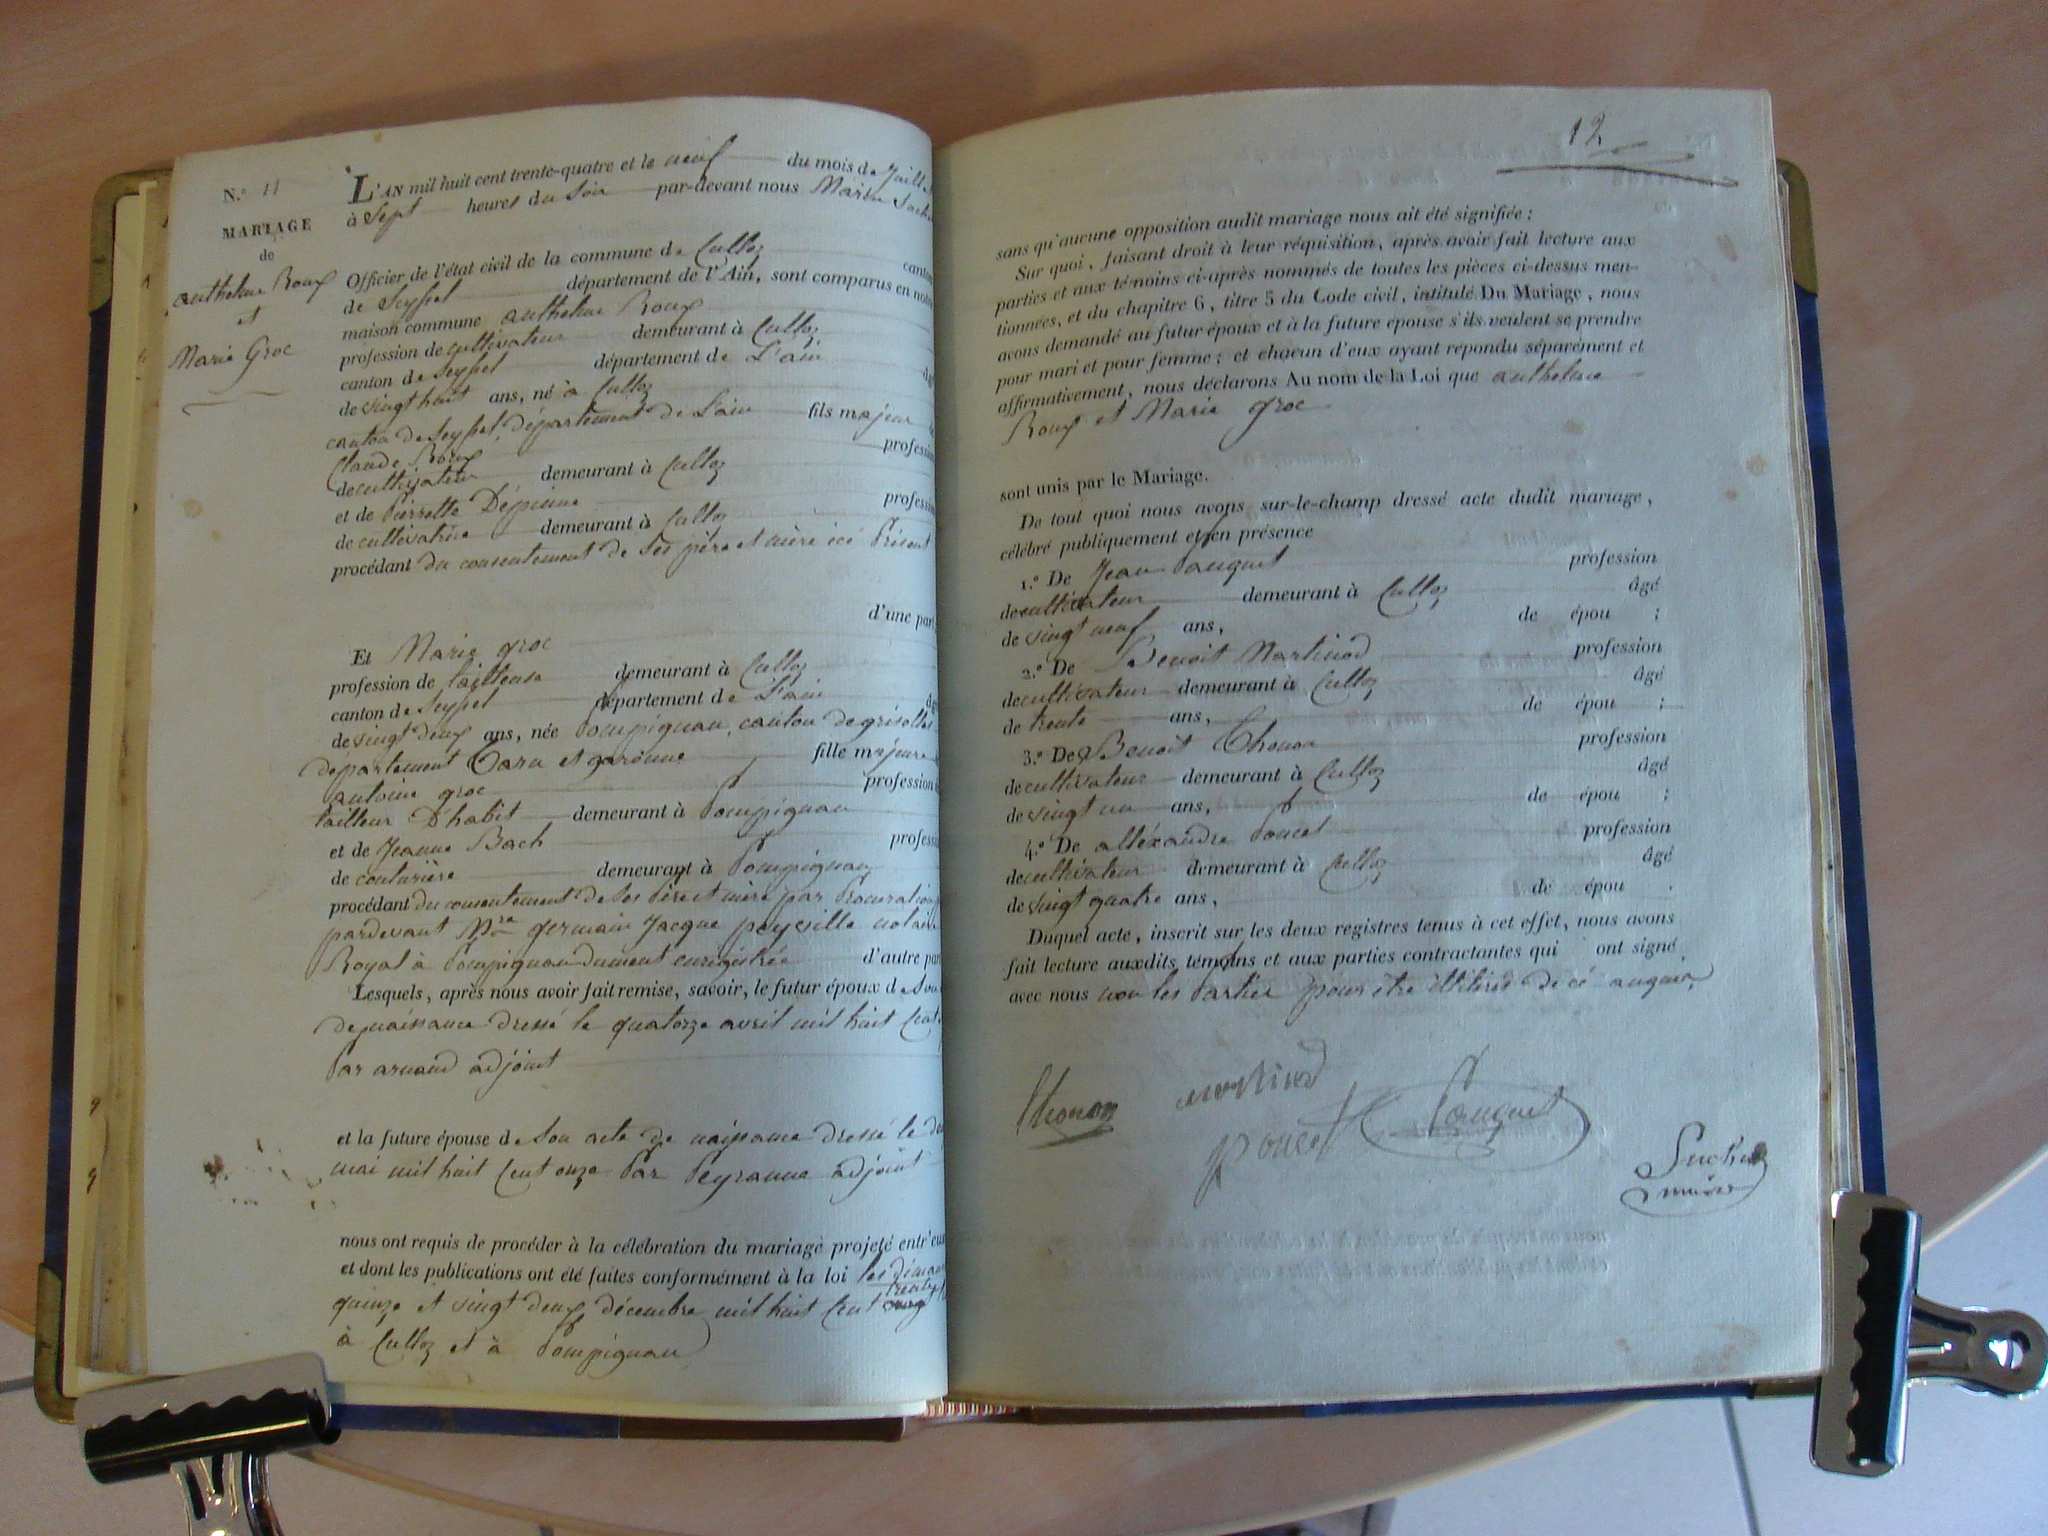 N.º 11
MARIAGE
de
anthelme Roux
et
Marie Groc
L'AN mil huit cent trente-quatre et le neuf du mois de Juill
à Sept heures du Soir par-devant nous Marin Suche
Officier de l'état civil de la commune de Culloz canton
de Seyssel département de l'Ain, sont comparus en notre
maison commune anthelme Roux
profession de cultivateur demeurant à Culloz
canton de Seyssel département de L'ain âgé
de vingt huit ans, né à Culloz
canton de Seyssel, département de L'ain fils majeur
Claude Roux profession
de cultivateur demeurant à Culloz
et de Pierrette Dépierre profession
de cultivatrice demeurant à Culloz
procédant du consentement de Ses père et mère icé Présent
d'une part,
Et Marie groc
profession de tailleuse demeurant à Culloz
canton de Seyssel département de L'ain âgé
de vingt deux ans, née Pompignan, canton de grisolles
département Tarn et garonne fille majeure
antoine groc profession
tailleur D'habit demeurant à Pompignan
et de Jeanne Bach profess
de couturière demeurant à Pompignan
procédant du consentement de Ses Père et mère par Procuration
pardevant Mre germain Jacque peyville notaire
Royal à Pompignan dument enrégistrée d'autre par
Lesquels, après nous avoir fait remise, savoir, le futur époux de Son
de naissance dressé le quatorze avril mil huit Cent
Par arnaud adjoint
et la future épouse de Son acte de naissance dressé le
mai mil huit Cent onze Par Peyranne adjoint
nous ont requis de procéder à la célébration du mariage projeté entr'eux
et dont les publications ont été faites conformément à la loi les diman
trente
quinze et vingt deux décembre mil huit Cent
à Culloz et à Pompignan
12
sans qu'aucune opposition audit mariage nous ait été signifiée ;
Sur quoi, faisant droit à leur réquisition, après avoir fait lecture aux
parties et aux témoins ci-après nommés de toutes les pièces ci-dessus men-
tionnées, et du chapitre 6, titre 5 du Code civil, intitulé Du Mariage, nous
avons demandé au futur époux et à la future épouse s'ils veulent se prendre
pour mari et pour femme ; et chacun d'eux ayant répondu séparément et
affirmativement, nous déclarons Au nom de la Loi que anthelme
Roux et Marie groc
sont unis par le Mariage.
De tout quoi nous avons sur-le-champ dressé acte dudit mariage,
célébré publiquement et en présence
1.º De Jean Pauguet profession
de cultivateur demeurant à Culloz âgé
de vingt neuf ans, de épou ;
2.º De Benoit Martinod profession
de cultivateur demeurant à Culloz âgé
de trente ans, de épou ;
3.º De Benoit Thonon profession
de cultivateur demeurant à Culloz âgé
de vingt un ans, de épou ;
4.º De alléxandre Poncet profession
de cultivateur demeurant à Culloz âgé
de vingt quatre ans, de épou .
Duquel acte, inscrit sur les deux registres tenus à cet effet, nous avons
fait lecture auxdits témoins et aux parties contractantes qui ont signé
avec nous non les Parties pour être illitérés de cé anquis
Thonon
martinod
poncet
Pauguet
Suchet
maire